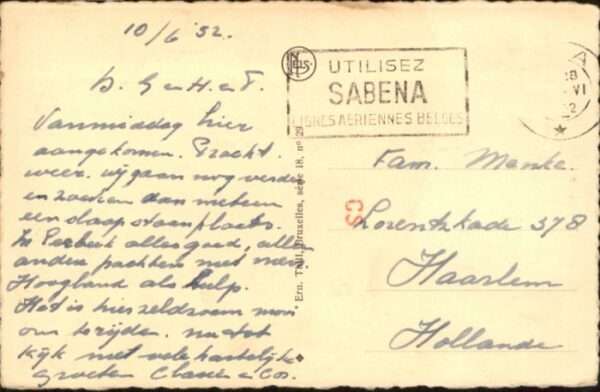 10/6 52.
B. G en H. en T.
Vanmiddag hier
aangekomen. Pracht.
weer. wij gaan nog verder
en zoeken dan meteen
een slaap staanplaats.
In alles goed, alles
andere pachten met mevr
Hoogland als hulp.
Het is hier zeldzaam mooi
om te rijden.
kijk met vele hartelijke
groeten Claase en Cor.
NELS
UTILISEZ
SABENA
LIGNES AERIENNES BELGES
Ern. Thill, Bruxelles, série 18, n° 29
CS
Fam. Manke.
Lorentzkade 378
Haarlem
Hollande